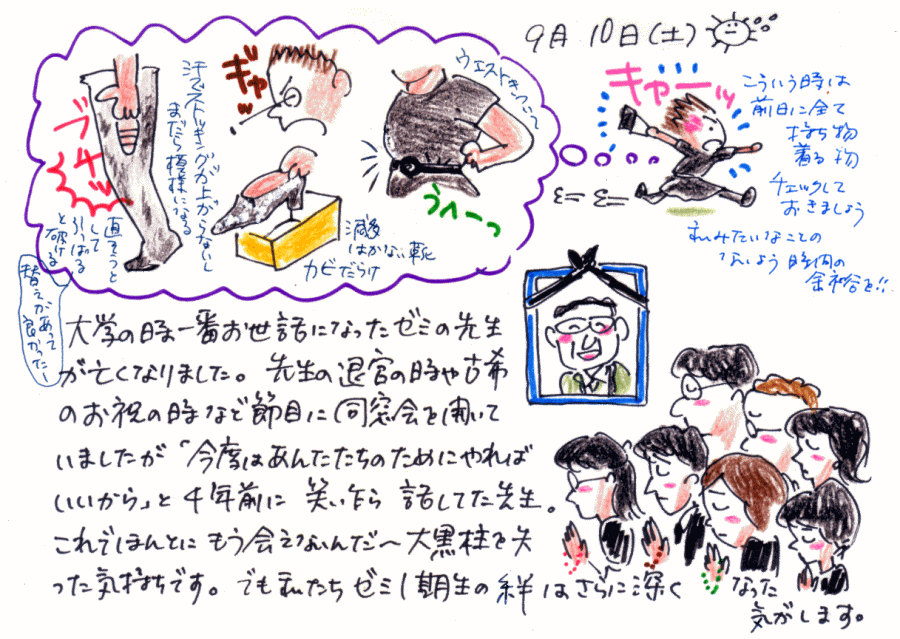 9月10日(土)
キャーッ
こういう時は
前日に全て
持ち物
着る物
チェックして
おきましょう
私みたいなことの
ないよう時間の
余裕を!!
ウエストきつくて
うへーっ
ギャッ
滅多
はかない靴
カビだらけ
汗でストッキングが上がらないし
まだら模様になる
ブチッ
直そうと
して
引っぱる
と破ける
替えがあって
良かったー
大学の時一番お世話になったゼミの先生
が亡くなりました。先生の退官の時や古希
のお祝の時など節目に同窓会を開いて
いましたが「今度はあんたたちのためにやれば
いいから」と4年前に笑い乍ら話してた先生。
これでほんとにもう会えないんだ〜大黒柱を失
った気持ちです。でも私たちゼミ1期生の絆はさらに深くなった
気がします。